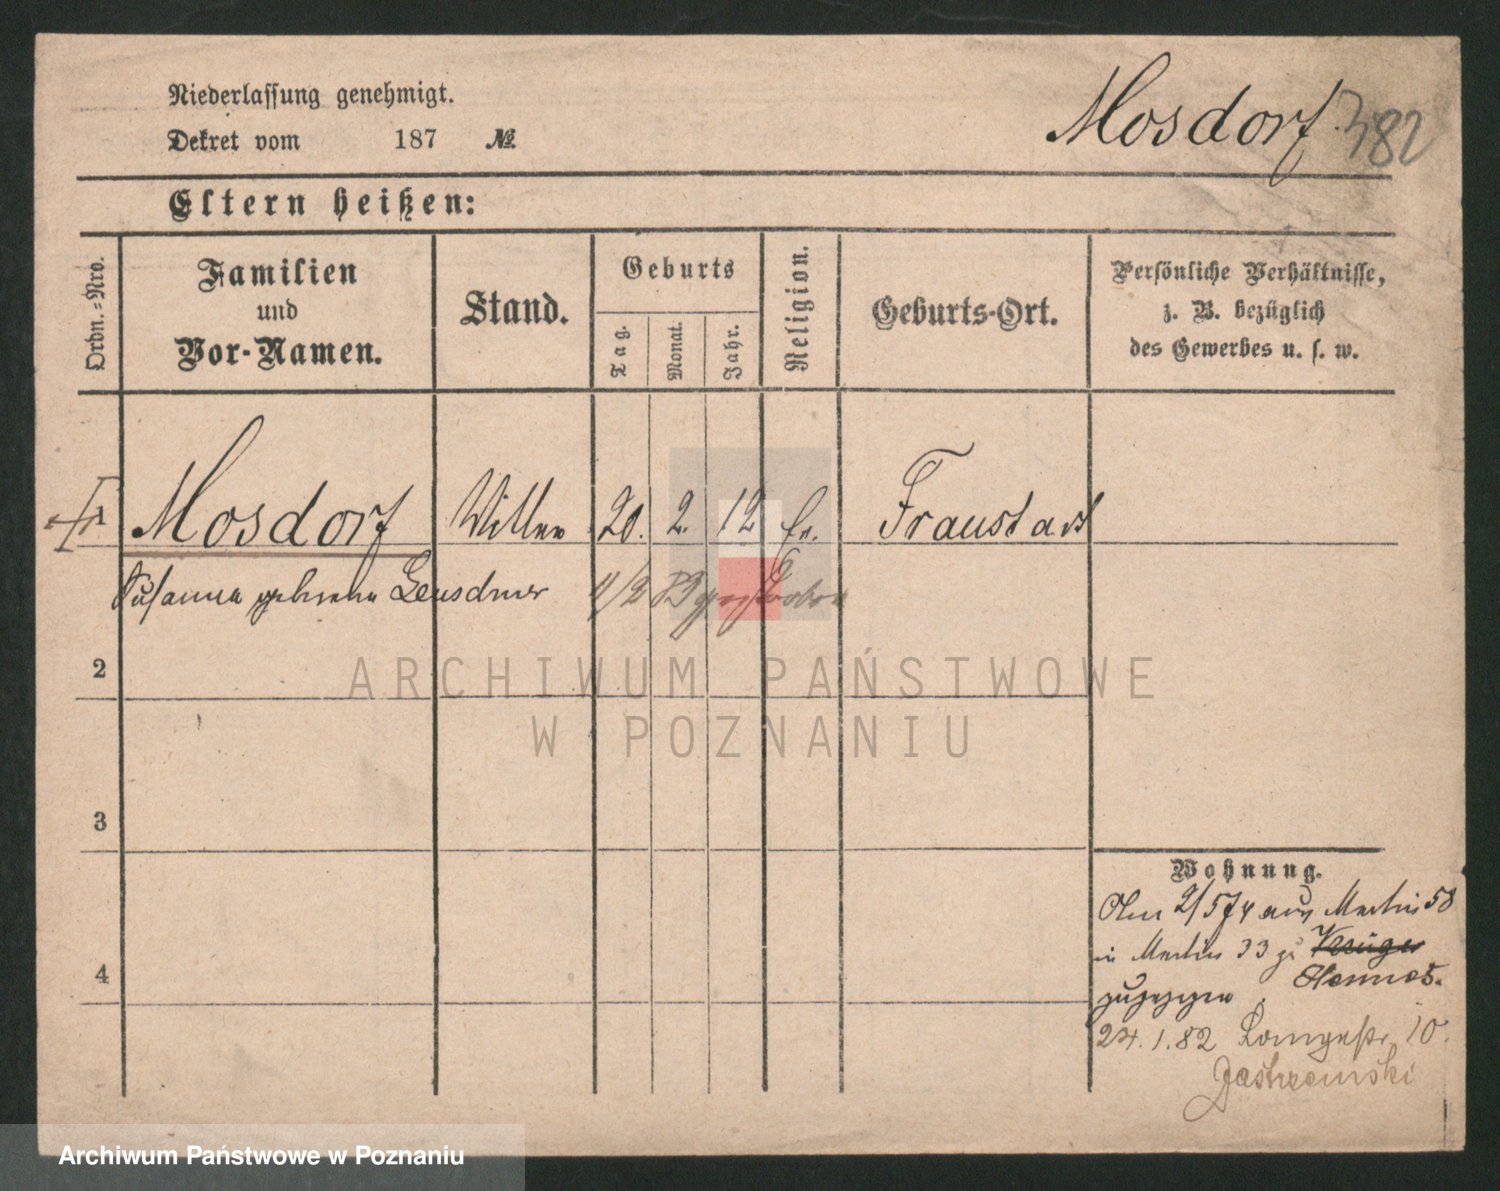 Niederlassung genehmigt.
Dekret vom 187 №
Mosdorf. 382
Eltern heißen:
Ordn.-Nro.
Familien
und
Vor-Namen.
Stand.
Geburts
Tag.
Monat.
Jahr.
Religion.
Geburts-Ort.
Persönliche Verhältnisse,
z. B. bezüglich
des Gewerbes u. s. w.
1 Mosdorf Wittwe 20. 2. 12 Fraustadt
Susanna geborene
2
3
4
Wohnung.
2/5 74 aus Martin 58
in Martin 33 zu Krüger
zugezogen
24.1.82 Langestr. 10.
Jastrzemski
ARCHIWUM PAŃSTWOWE
W POZNANIU
Archiwum Państwowe w Poznaniu